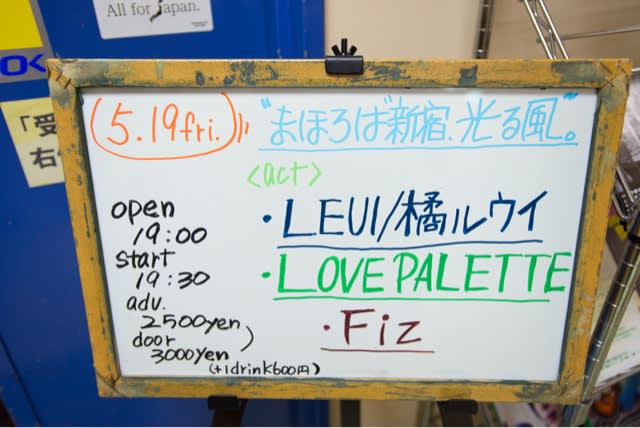 All for Japan.
OK
「受
右
(5.19fri.)
"まほろば新宿、光る風。"
<act>
・LEUI/橘ルウイ
・LOVE PALETTE
・Fiz
open
19:00
start
19:30
adv.
2500yen
door
3000yen
(+1drink600円)